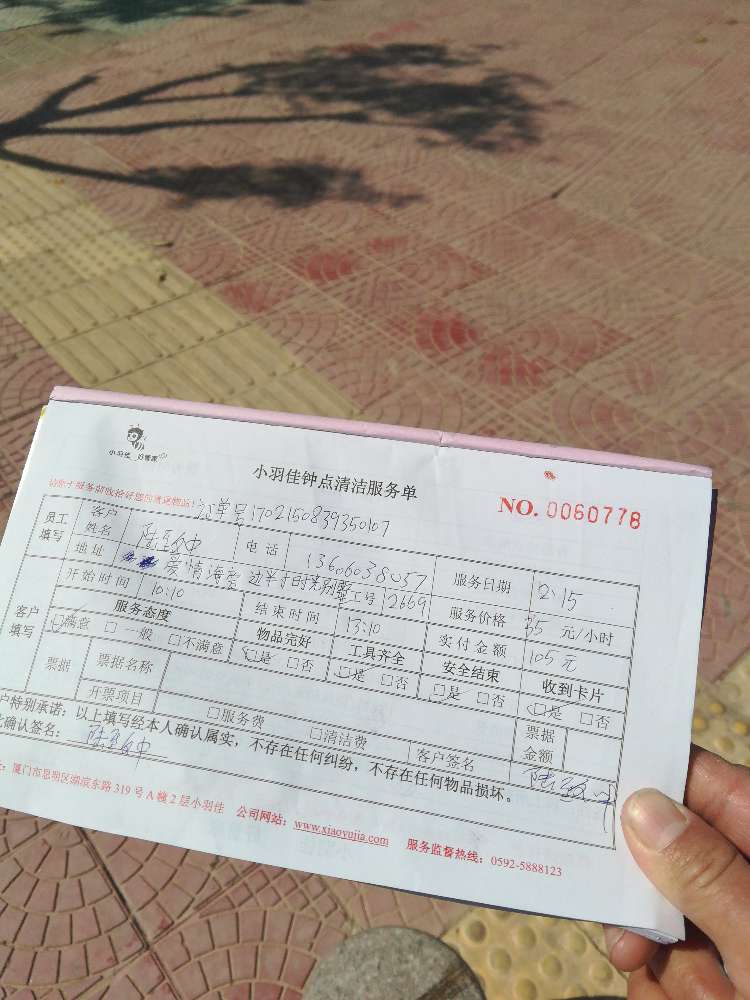 小羽佳 好管家
小羽佳钟点清洁服务单
NO. 0060778
订单号1702150839350107
员工填写 客户姓名 电话 服务日期 2.15
地址 工号 2669 服务价格 35 元/小时
开始时间 10:10 结束时间 13:10 实付金额 105元
客户填写 服务态度 物品完好 工具齐全 安全结束 收到卡片
满意 □一般 □不满意 是 □否 是 □否 □是 □否 是 □否
票据 票据名称 票据金额
开票项目 □服务费 □清洁费 客户签名
户特别承诺：以上填写经本人确认属实，不存在任何纠纷，不存在任何物品损坏。
确认签名：
厦门市思明区湖滨东路319号A幢2层小羽佳 公司网站：www.xiaoyujia.com 服务监督热线：0592-5888123